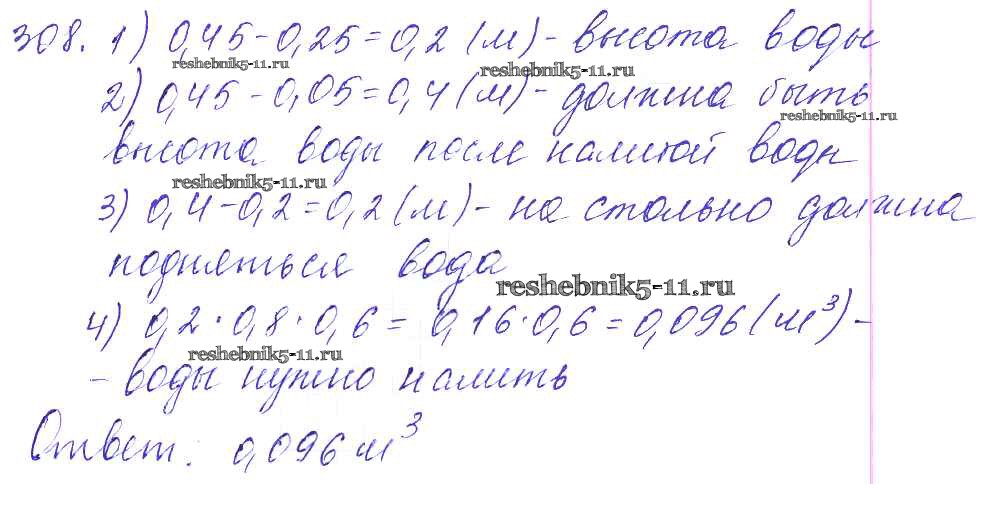 308. 1) 0,45 - 0,25 = 0,2 (м) - высота воды
reshebnik5-11.ru
reshebnik5-11.ru
2) 0,45 - 0,05 = 0,4 (м) - должна быть
reshebnik5-11.ru
высота воды после налитой воды
reshebnik5-11.ru
3) 0,4 - 0,2 = 0,2 (м) - на столько должна
подняться вода
reshebnik5-11.ru
4) 0,2 · 0,8 · 0,6 = 0,16 · 0,6 = 0,096 (м³) -
reshebnik5-11.ru
- воды нужно налить
Ответ: 0,096 м³